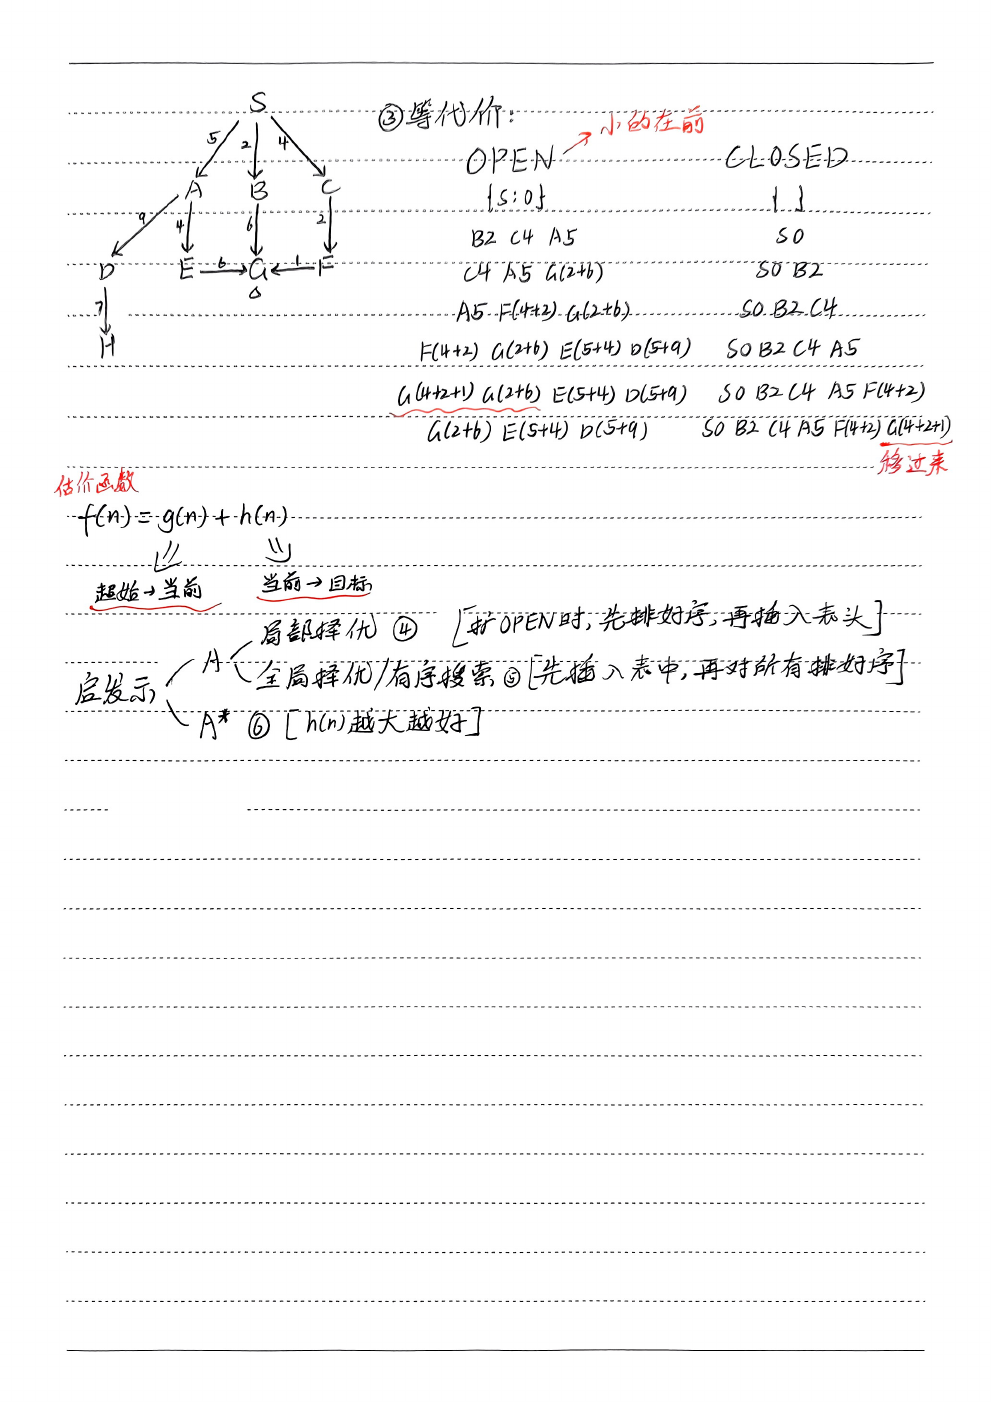 S
5 2 4
A B C
9 4 6 2
D E 6 G 1 F
0
7
H
③等代价:
小的在前
OPEN CLOSED
{S:0} { }
B2 C4 A5 S0
C4 A5 G(2+6) S0 B2
A5 F(4+2) G(2+6) S0 B2 C4
F(4+2) G(2+6) E(5+4) D(5+9) S0 B2 C4 A5
G(4+2+1) G(2+6) E(5+4) D(5+9) S0 B2 C4 A5 F(4+2)
G(2+6) E(5+4) D(5+9) S0 B2 C4 A5 F(4+2) G(4+2+1)
移过来
估价函数
f(n) = g(n) + h(n)
起始→当前 当前→目标
启发示
A
局部择优 ④ [扩OPEN时,先排好序,再插入表头]
全局择优/有序搜索 ⑤ [先插入表中,再对所有排好序]
A* ⑥ [h(n)越大越好]